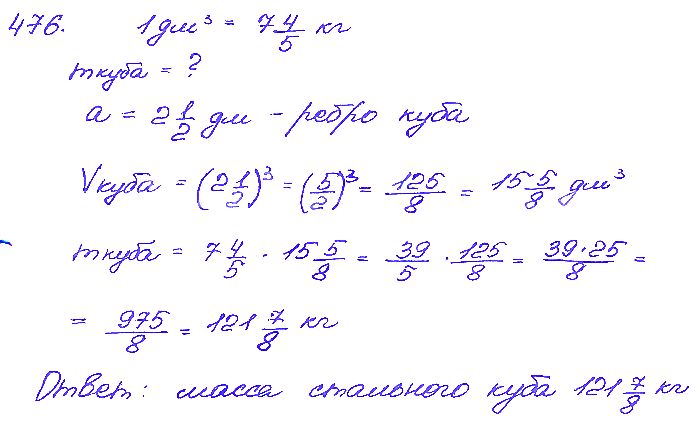 476. 1 дм³ = 7 4/5 кг
m куба = ?
a = 2 1/2 дм - ребро куба
V куба = (2 1/2)³ = (5/2)³ = 125/8 = 15 5/8 дм³
m куба = 7 4/5 · 15 5/8 = 39/5 · 125/8 = 39·25/8 =
= 975/8 = 121 7/8 кг
Ответ: масса стального куба 121 7/8 кг